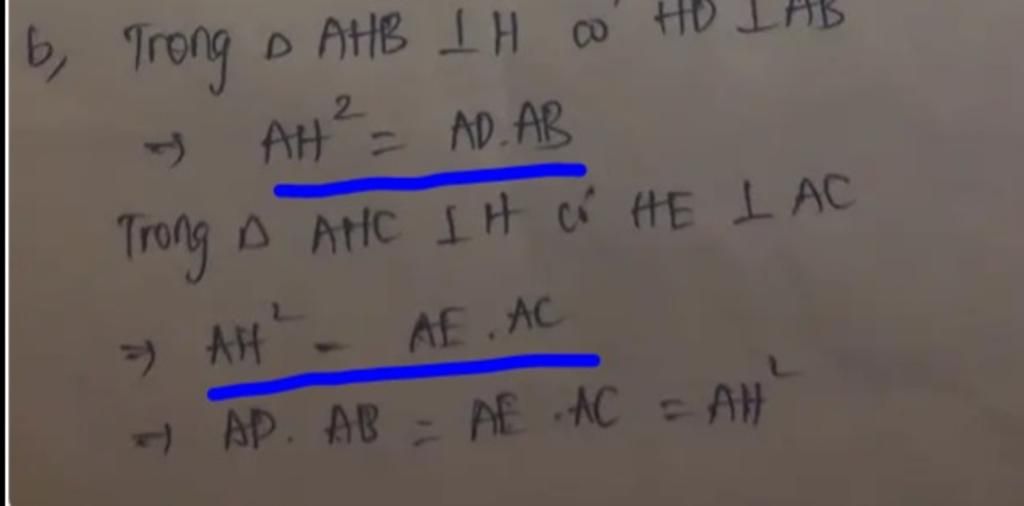 b, Trong Δ AHB ⊥ H có HD ⊥ AB
=> AH² = AD.AB
Trong Δ AHC ⊥ H có HE ⊥ AC
=> AH² - AE . AC
=> AD. AB = AE . AC = AH²